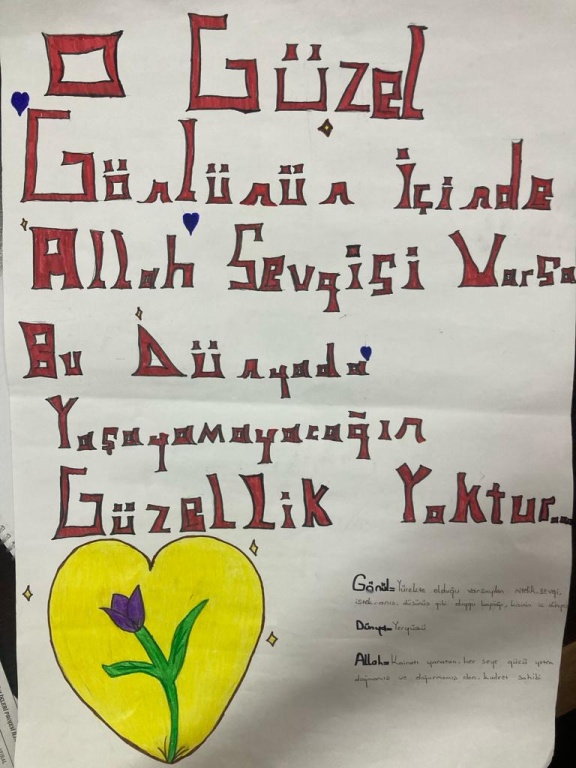 O Güzel
Gönlünün İçinde
Allah Sevgisi Varsa
Bu Dünyada
Yaşayamayacağın
Güzellik Yoktur...
Gönül= Yürekte olduğu varsayılan nitelik, sevgi,
istek, anış, düşünüş gibi duygu kaynağı, hissin iç dünya
Dünya= Yeryüzü
Allah= Kainatı yaratan, her şeye gücü yeten
doğmamış ve doğurmamış olan, kudret sahibi